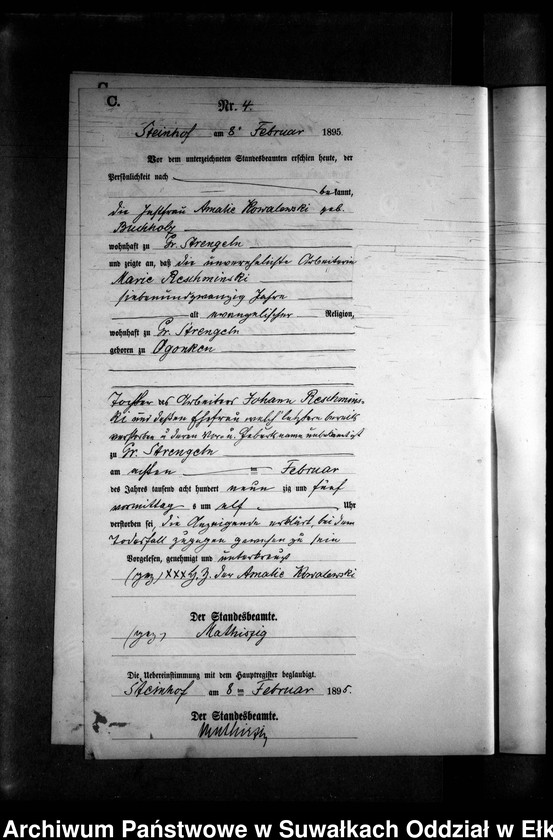 C.
Nr. 4.
Steinhof am 8ⁿ Februar 1895.
Vor dem unterzeichneten Standesbeamten erschien heute, der
Persönlichkeit nach
bekannt,
die Instfrau Amalie Kowalewski geb.
Buchholz
wohnhaft zu Gr. Strengeln
und zeigte an, daß die unverehelichte Arbeiterin
Marie Reschminski
siebenundzwanzig Jahre
alt evangelischer Religion,
wohnhaft zu Gr. Strengeln
geboren zu Ogonken
Tochter des Arbeiters Johann Reschmins-
ki und dessen Ehefrau welch' letztere bereits
verstorben u deren Vor- u. Geburtsname unbekannt
zu Gr. Strengeln
am achten ten Februar
des Jahres tausend acht hundert neun zig und fünf
vormittags um elf Uhr
verstorben sei, die Anzeigende erklärt, bei dem
Todesfall zugegen gewesen zu sein
Vorgelesen, genehmigt und unterkreuzt
(gez) XXX H. Z. der Amalie Kowalewski
Der Standesbeamte.
(gez) Mathiszig
Die Uebereinstimmung mit dem Hauptregister beglaubigt.
Steinhof am 8 ten Februar 1895.
Der Standesbeamte.
Mathiszig
Archiwum Państwowe w Suwałkach Oddział w Ełk